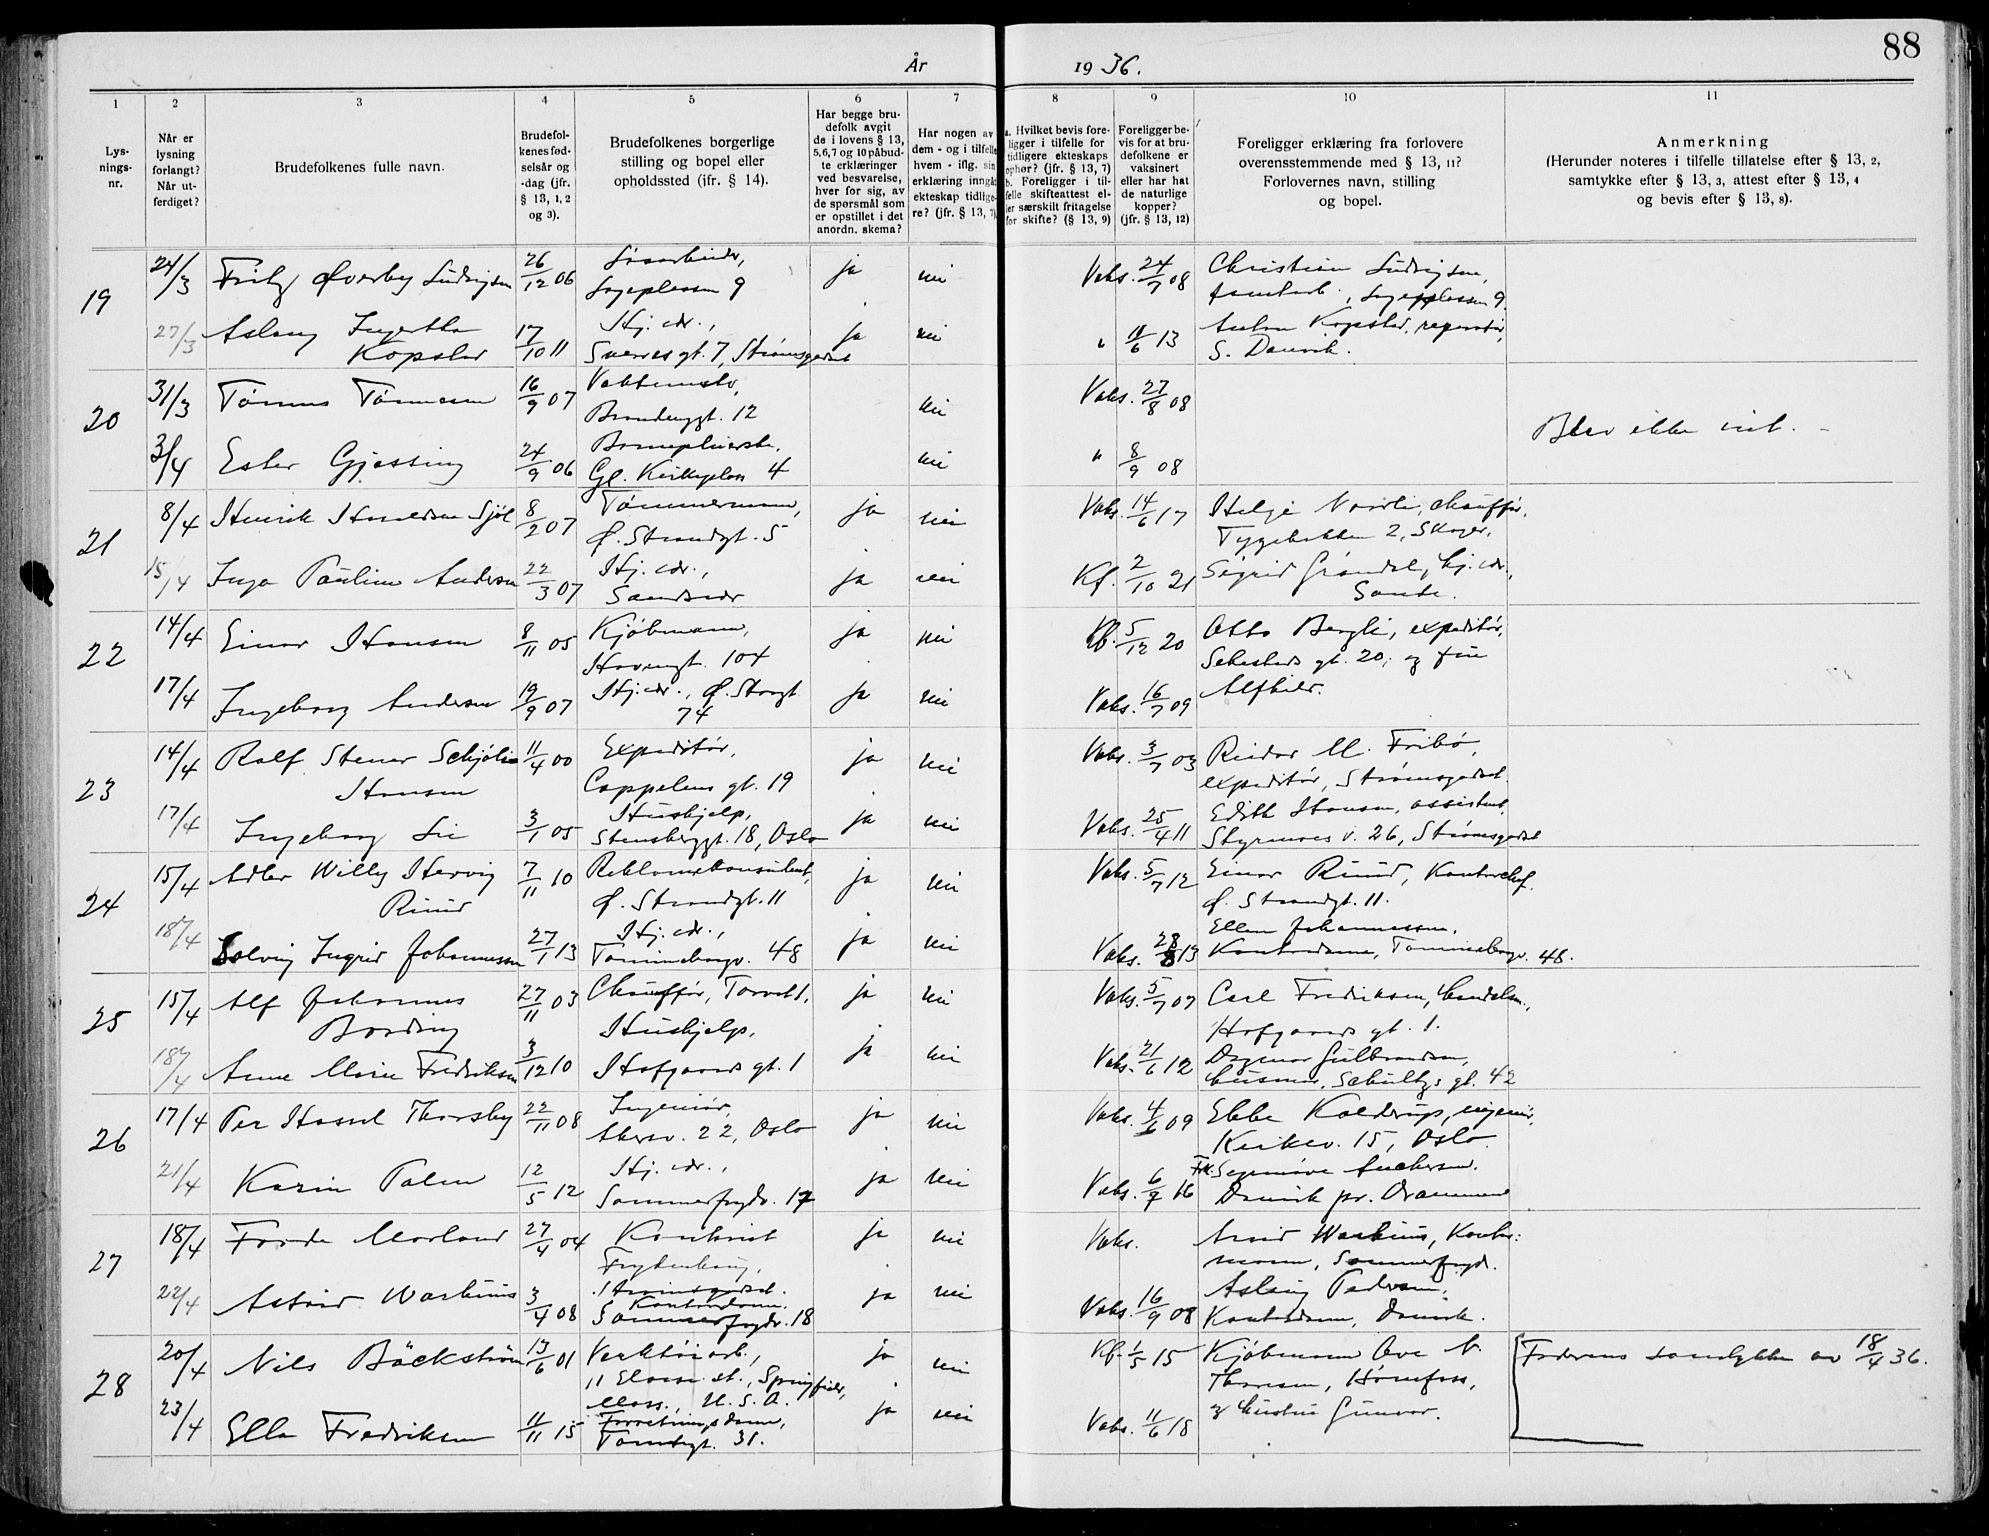 88
År 1936.
1 2 3 4 5 6 7 8 9 10 11
Lys-
nings-
nr.
Når er
lysning
forlangt?
Når ut-
ferdiget?
Brudefolkenes fulle navn.
Brudefol-
kenes fød-
selsår og
-dag (jfr.
§ 13, 1, 2
og 3).
Brudefolkenes borgerlige
stilling og bopel eller
opholdssted (ifr. § 14).
Har begge bru-
defolk avgit
de i lovens § 13,
5,6,7 og 10 påbud-
te erklæringer
ved besvarelse,
hver for sig, av
de spørsmål som
er opstillet i det
anordn. skema?
Har nogen av
dem - og i tilfelle
hvem - iflg. sin
erklæring inngåt
ekteskap tidlige-
re? (jfr. § 13, 7).
a. Hvilket bevis fore-
ligger i tilfelle for
tidligere ekteskaps
ophør? (jfr. § 13, 7)
b. Foreligger i til-
felle skifteattest el-
ler særskilt fritagelse
for skifte? (§ 13, 9)
Foreligger be-
vis for at bru-
defolkene er
vaksinert
eller har hat
de naturlige
kopper?
(jfr. § 13, 12)
Foreligger erklæring fra forlovere
overensstemmende med § 13, 11?
Forlovernes navn, stilling
og bopel.
Anmerkning
(Herunder noteres i tilfelle tillatelse efter § 13, 2,
samtykke efter § 13, 3, attest efter § 13, 4
og bevis efter § 13, 8).
19 24/3 Fritz Øverby Ludvigsen 26/12 06 ja nei Vaks. 24/7 08 Christian Ludvigsen,
27/3 Aslaug Ingertha Kopslar 17/10 11 Hj. vær., ja nei " 11/6 13 Anton Kopslar, reparatør,
Sverres gt. 7, Strømsgodset S. Danvik.
20 31/3 Tønnes Tønnesen 16/9 07 nei Vaks. 27/8 08
12
3/4 Ester Gjessing 24/9 06 nei " 8/9 08 Blev ikke viet. -
Gl. Kirkeplass 4
21 8/4 Henrik 8/2 07 Tømmermann, ja nei Vaks. 14/6 17 Helge chauffør,
Ø. Strandgt. 5 2, Skoger.
15/4 Inga Pauline Andersen 22/3 07 Hj. vær., ja nei Kf. 2/10 21 Sigrid Grøndal, hj. vær.,
22 14/4 Einar Hansen 8/11 05 Kjøbmann, ja nei Kf. 5/12 20 Otto Bergli, expeditør,
Havnegt. 104 gt. 20, og frue
17/4 Ingeborg Andersen 19/9 07 Hj. vær., Ø. Storgt. 74 ja nei Vaks. 16/7 09 Alfhild.
23 14/4 Rolf Stener Schjølin Hansen 11/4 00 Expeditør, ja nei Vaks. 3/7 03 Reidar M. Fribø,
Cappelens gt. 19 expeditør, Strømsgodset.
17/4 Ingeborg Lie 3/1 05 Hushjelp, ja nei Vaks. 25/4 11 Edith Hansen, assistent,
Stensberggt. 18, Oslo Styrmoes v. 26, Strømsgodset
24 15/4 Adler Willy Hervig Ruud 7/11 10 Reklamekonsulent, ja nei Vaks. 5/7 12 Einar Ruud, Kontorchef.
Ø. Strandgt. 11 Ø. Strandgt. 11.
18/4 Solveig Ingrid Johannessen 27/1 13 Hj. vær., ja nei Vaks. 28/8 13 Ellen Johannessen,
48 Kontordame, 48.
25 15/4 Alf Johannes Bording 27/11 03 Chauffør, Torvet 1. ja nei Vaks. 5/7 07 Carl Fredriksen, handelsm.,
Hofgaards gt. 1.
18/4 Anne Marie Fredriksen 3/12 10 Hushjelp, ja nei Vaks. 21/6 12 Dagmar Gulbrandsen,
Hofgaards gt. 1 husmor, Schultz's gt. 42
26 17/4 Per Hassel Thorsby 22/11 08 Ingeniør, ja nei Vaks. 4/6 09 Ebbe Koldrup, ingeniør,
Akersv. 22, Oslo Kirkev. 15, Oslo.
21/4 Karin Palm 12/5 12 Hj. vær., ja nei Vaks. 6/7 16 Frk. Synnøve Andersen.
Sommerfrydv. 17 Danvik pr. Drammen
27 18/4 Frode Morland 27/4 04 Kontorist ja nei Vaks. Arvid Warhuus, Kontor-
Frydenberg, mann, Sommerfrydv.
22/4 Astrid Warhuus 3/4 08 Strømsgodset. ja nei Vaks. 16/9 08 Aslaug Pedersen,
Kontordame.
Sommerfrydv. 18 Kontordame, Danvik.
28 20/4 Nils Bäckström 13/6 01 Verktøiarb., ja nei Kf. 1/5 15 Kjøbmann Ove N.
11 st., Springfield, Thoresen, Hønefoss, Faderens samtykke av 18/4 36.
Mass., U.S.A.
23/4 Ella Fredriksen 11/11 15 Forretningsdame, ja nei Vaks. 11/6 18 og hustru Gunvor.
31.